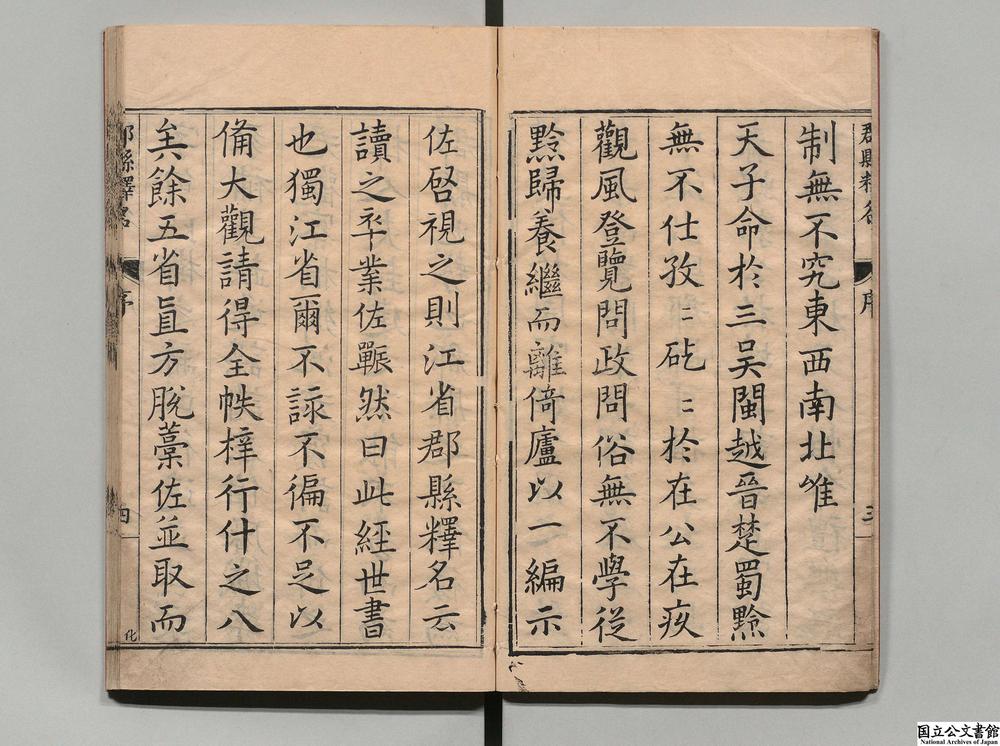 郡縣釋名
序
三
制無不究東西南北唯
天子命於三吴閩越晉楚蜀黔
無不仕孜〻矻〻於在公在疚
觀風登覽問政問俗無不學從
黔歸養繼而離倚廬以一編示
佐啓視之則江省郡縣釋名云
讀之卒業佐囅然曰此經世書
也獨江省爾不詠不徧不足以
備大觀請得全帙梓行什之八
矣餘五省直方脫藁佐並取而
郡縣釋名
序
四
化
国立公文書館
National Archives of Japan